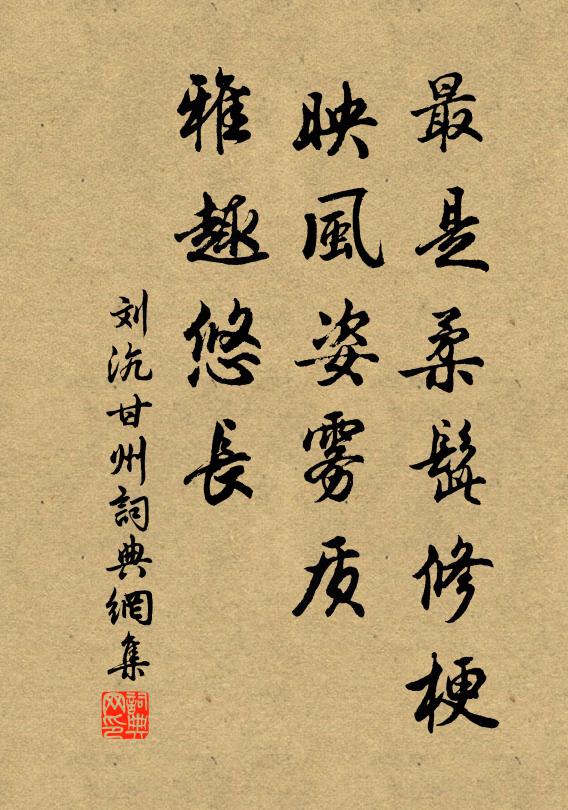 最是柔髭修梗
映風姿雾质
雅趣悠長
刘沆甘州詞典網集
詞典网印